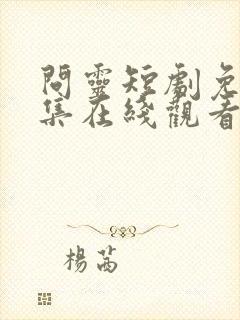 問靈短劇免
集在綫觀看
楊茜